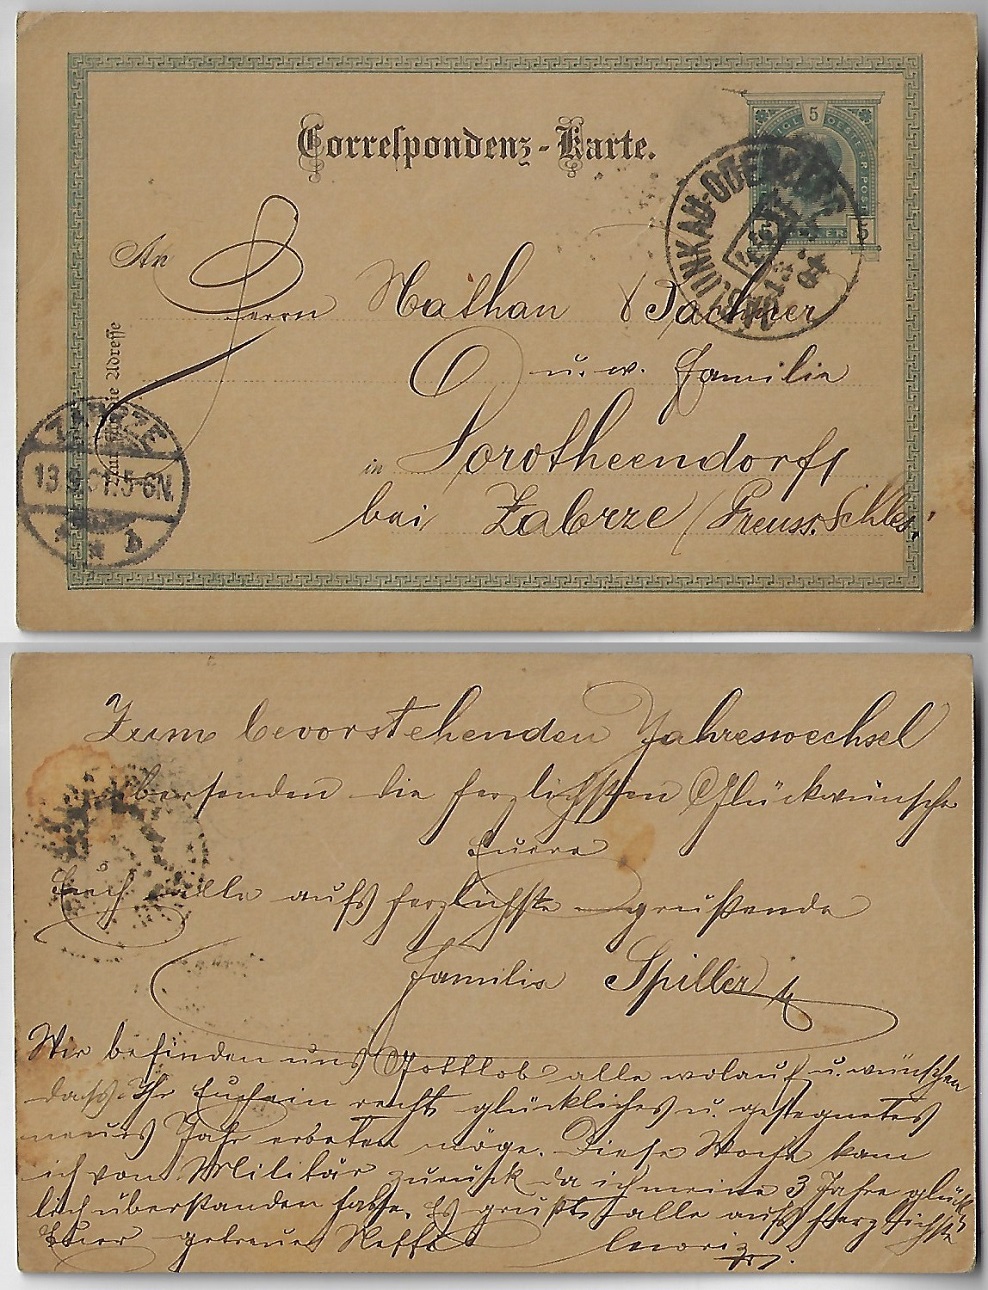 Correspondenz-Karte.
5
5 5
An
Herrn Nathan Bachner
u. w. Familie
in Dorotheendorf
bei Zabrze (Preuss. Schles.
ZABRZE
13.9.01.5-6N.
Zum bevorstehenden Jahreswechsel
übersenden die herzlichsten Glückwünsche
Euere
Euch alle aufs herzlichste grüßende
Familie Spiller
Wir befinden uns Gottlob alle wolauf u. wünschen
dass Ihr Euch ein recht glückliches u. gesegnetes
neues Jahr erbeten möge. Diese Woche kam
ich von Militär zurück da ich meine 3 Jahre glück
lich überstanden habe. Es grüßt alle aufs herzlichste
Euer getreuer Neffe Moriz